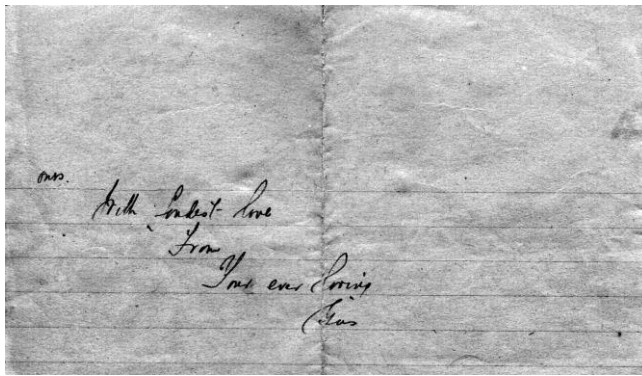 ours.
With fondest love
From
Your ever loving
Gus